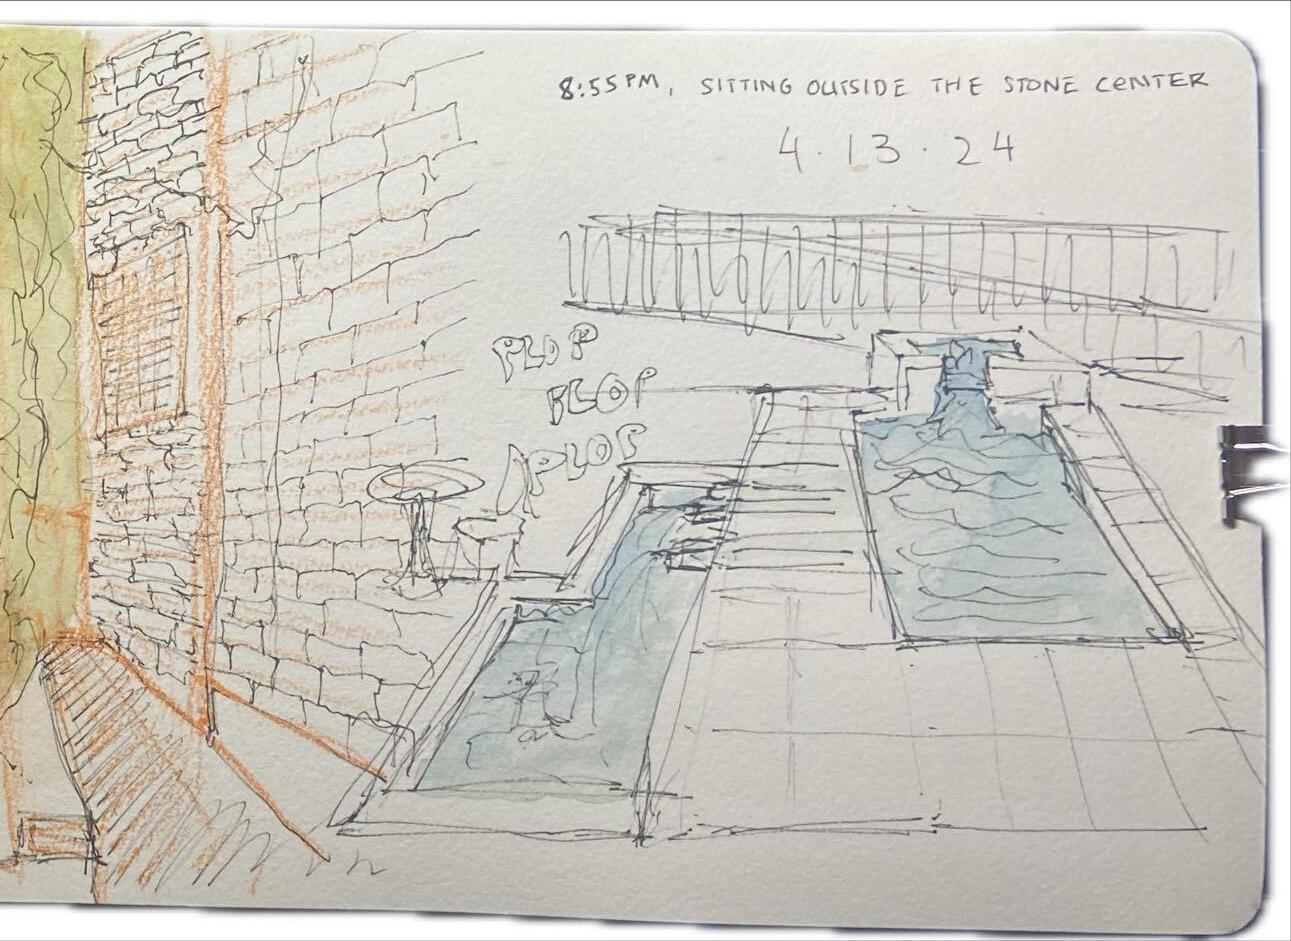 8:55PM, SITTING OUTSIDE THE STONE CENTER
4.13.24
PLOP
PLOP
PLOP